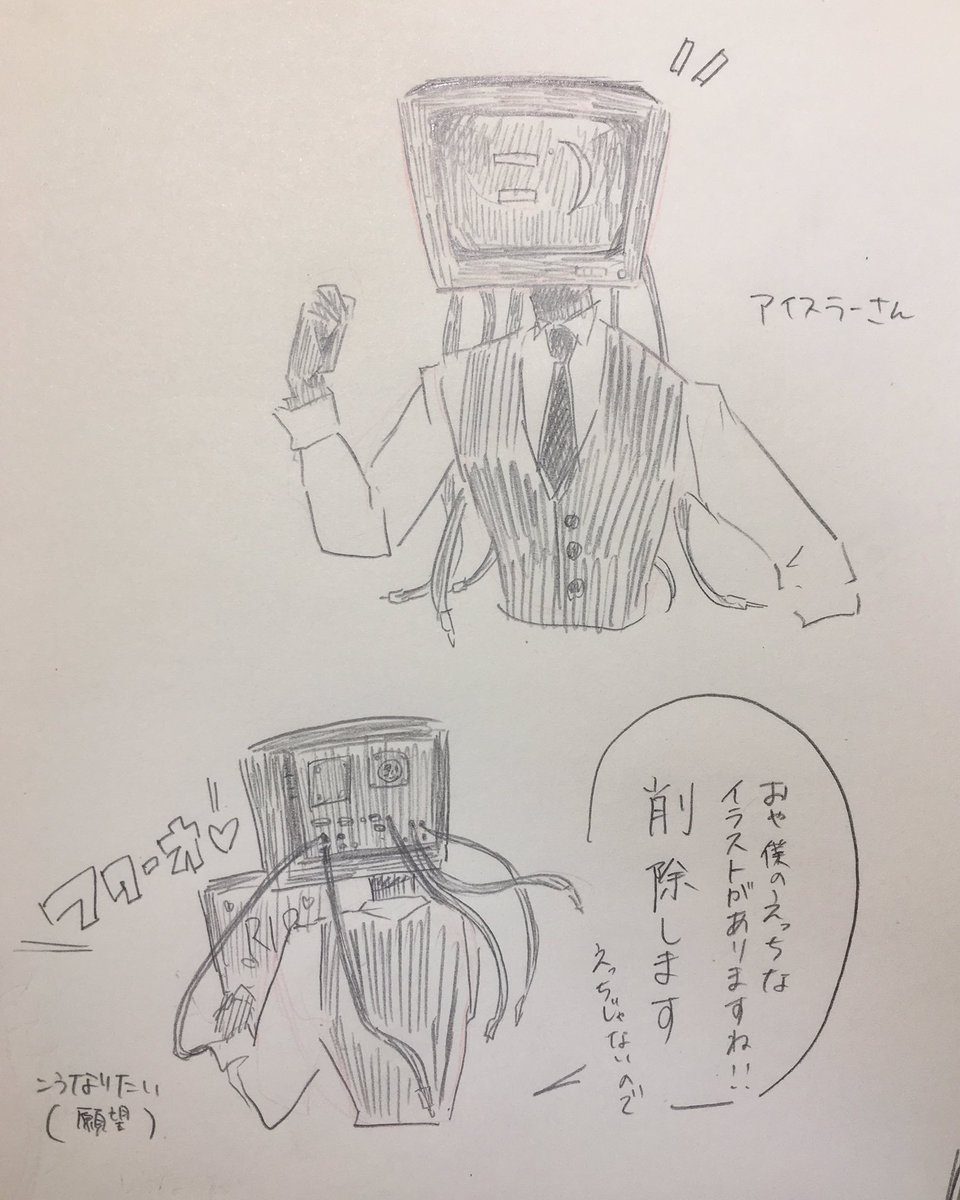 アイスラーさん
おや僕のえっちな
イラストがありますね!!
削除します
えっちじゃないので
ワ〜オ♡
RIRI
こうなりたい
(願望)